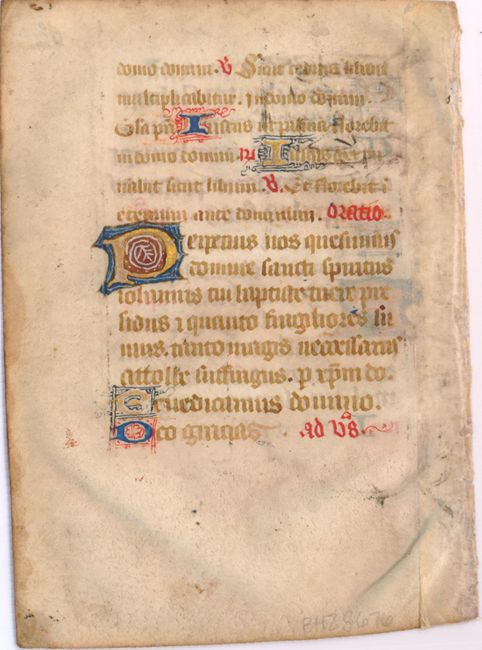 domo domini. V Sicut cedrus libani
multiplicabitur. In domo domini.
Gla pri Iustus ut palma florebit
in domo domini R Iustus ger mi
nabit sicut lilium. V. Et florebit i
eternum ante dominum. Oratio
Perpetuis nos quesumus
domine sancti
iohannis tui baptiste tuere pre
sidiis ⁊ quanto fragiliores su
mus. tanto magis necessariis
attolle suffragiis. p xpm do.
Benedicamus domino.
Deo gracias ad Vs
BHZ8676